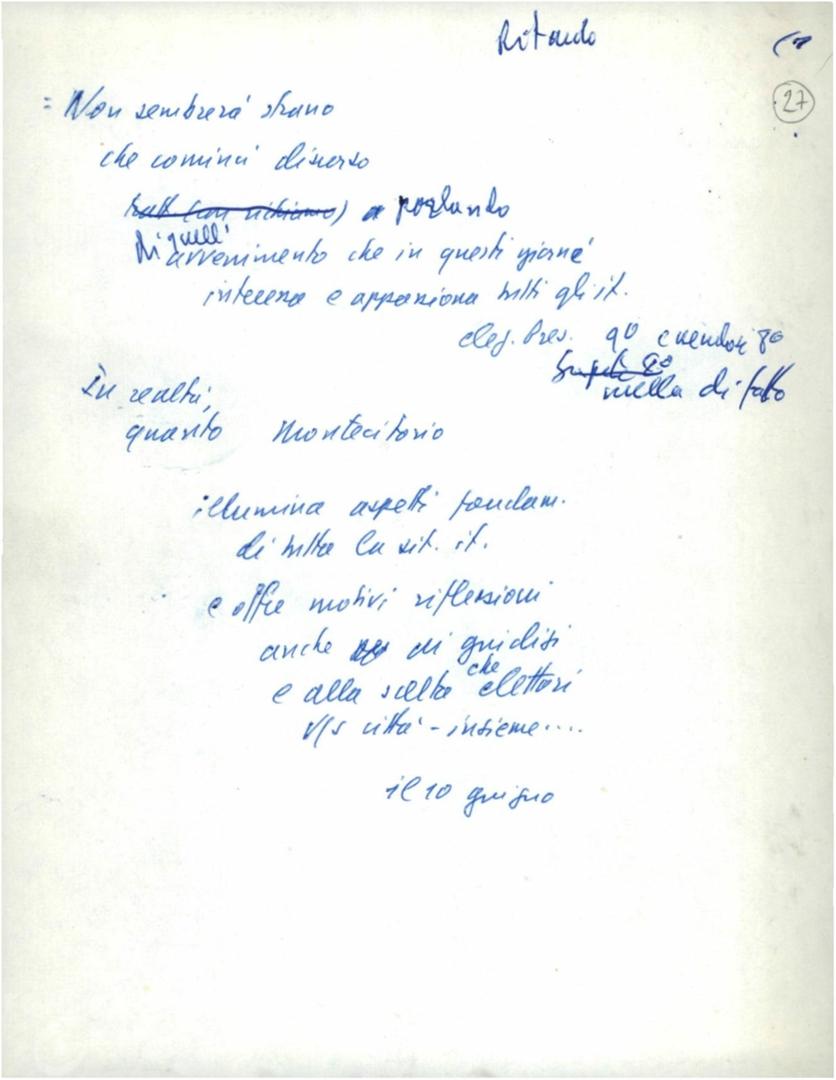 Ritardo
27
= Non sembrerà strano
che cominci discorso
parlando
di quell'
avvenimento che in questi giorni
interessa e appassiona tutti gli it.
elez. Pres. 90
nulla di fatto
In realtà,
quanto Montecitorio
illumina aspetti fondam.
di tutta la sit. it.
e offre motivi riflessioni
anche di giudizi
e alla scelta che elettori
v/s città - insieme....
il 10 giugno